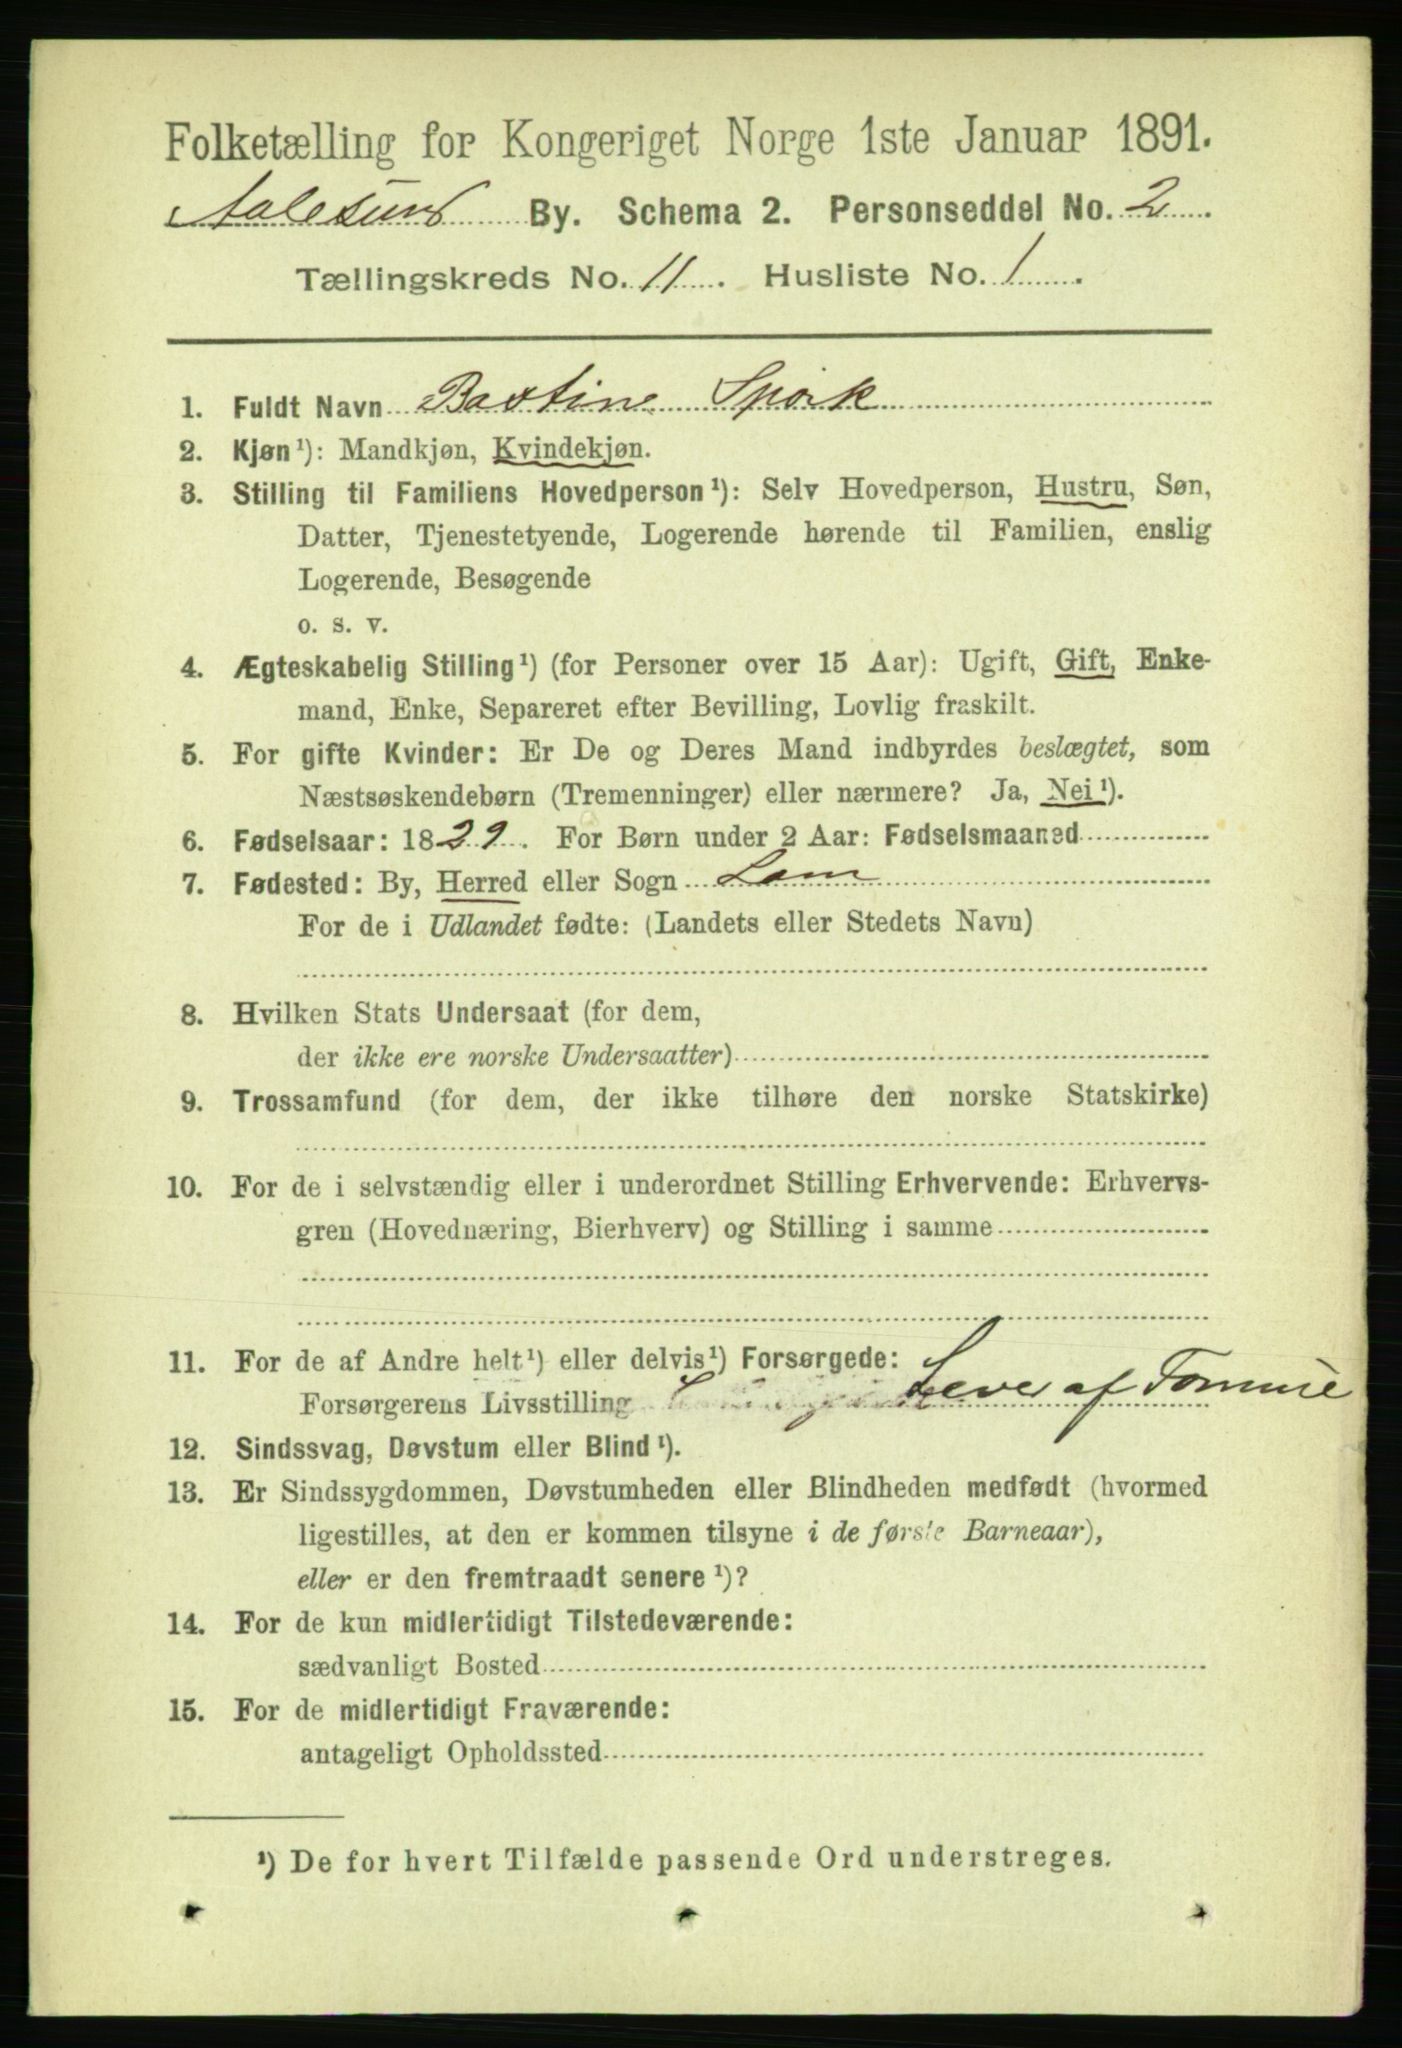 Folketælling for Kongeriget Norge 1ste Januar 1891.
Aalesund By. Schema 2. Personseddel No. 2
Tællingskreds No. 11. Husliste No. 1.
1. Fuldt Navn Bastine Spørk
2. Kjøn¹): Mandkjøn, Kvindekjøn.
3. Stilling til Familiens Hovedperson¹): Selv Hovedperson, Hustru, Søn,
Datter, Tjenestetyende, Logerende hørende til Familien, enslig
Logerende, Besøgende
o. s. v.
4. Ægteskabelig Stilling¹) (for Personer over 15 Aar): Ugift, Gift, Enke-
mand, Enke, Separeret efter Bevilling, Lovlig fraskilt.
5. For gifte Kvinder: Er De og Deres Mand indbyrdes beslægtet, som
Næstsøskendebørn (Tremenninger) eller nærmere? Ja, Nei¹).
6. Fødselsaar: 1829. For Børn under 2 Aar: Fødselsmaaned
7. Fødested: By, Herred eller Sogn Lom
For de i Udlandet fødte: (Landets eller Stedets Navn)
8. Hvilken Stats Undersaat (for dem,
der ikke ere norske Undersaatter)
9. Trossamfund (for dem, der ikke tilhøre den norske Statskirke)
10. For de i selvstændig eller i underordnet Stilling Erhvervende: Erhvervs-
gren (Hovednæring, Bierhverv) og Stilling i samme
11. For de af Andre helt¹) eller delvis¹) Forsørgede:
Forsørgerens Livsstilling Lever af Formue
12. Sindssvag, Døvstum eller Blind¹).
13. Er Sindssygdommen, Døvstumheden eller Blindheden medfødt (hvormed
ligestilles, at den er kommen tilsyne i de første Barneaar),
eller er den fremtraadt senere¹)?
14. For de kun midlertidigt Tilstedeværende:
sædvanligt Bosted
15. For de midlertidigt Fraværende:
antageligt Opholdssted
¹) De for hvert Tilfælde passende Ord understreges.